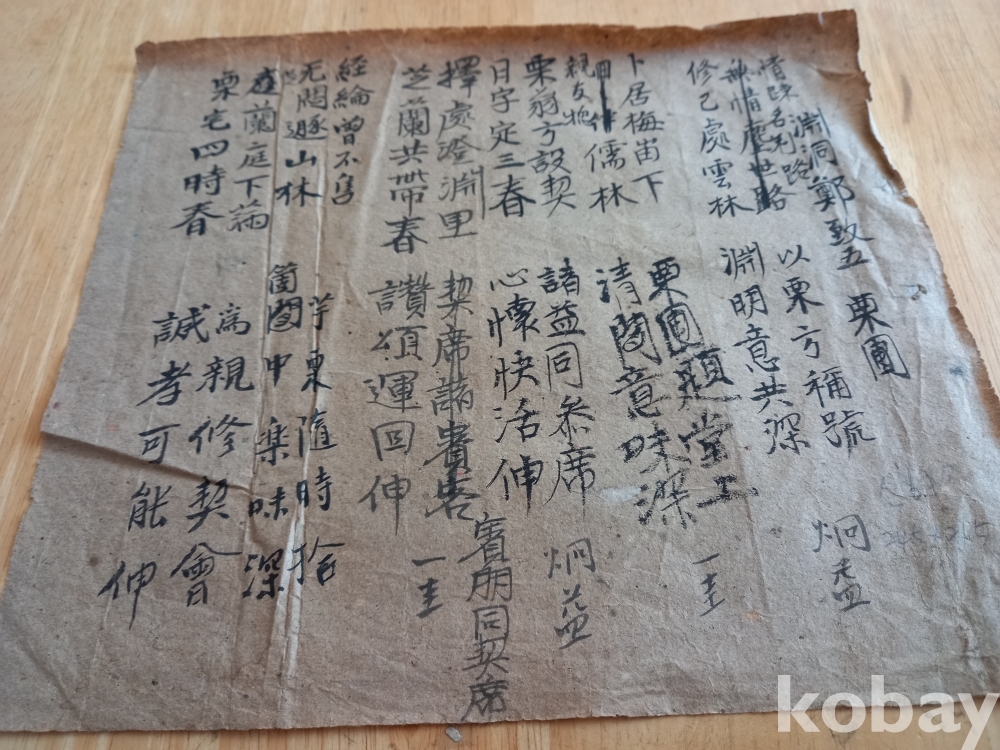 淵洞鄭致五 栗園
情疎名利路
無情塵世路
修己處雲林
以栗方稱號 炯益
淵明意共深
卜居梅 下
儒林
親友
栗翁方設契
日字定三春
栗園題堂上
清閒意味深 一圭
諸益同參席 炯益
心懷快活伸
擇處澄淵里
芝蘭共帶春
契席諸貴客
賓朋同契席
讚頌運回伸 一圭
經綸曾不售
无悶遯山林
蘭庭下滿
栗宅四時春
芋栗隨時拾
箇中樂味深
爲親修契會
誠孝可能伸